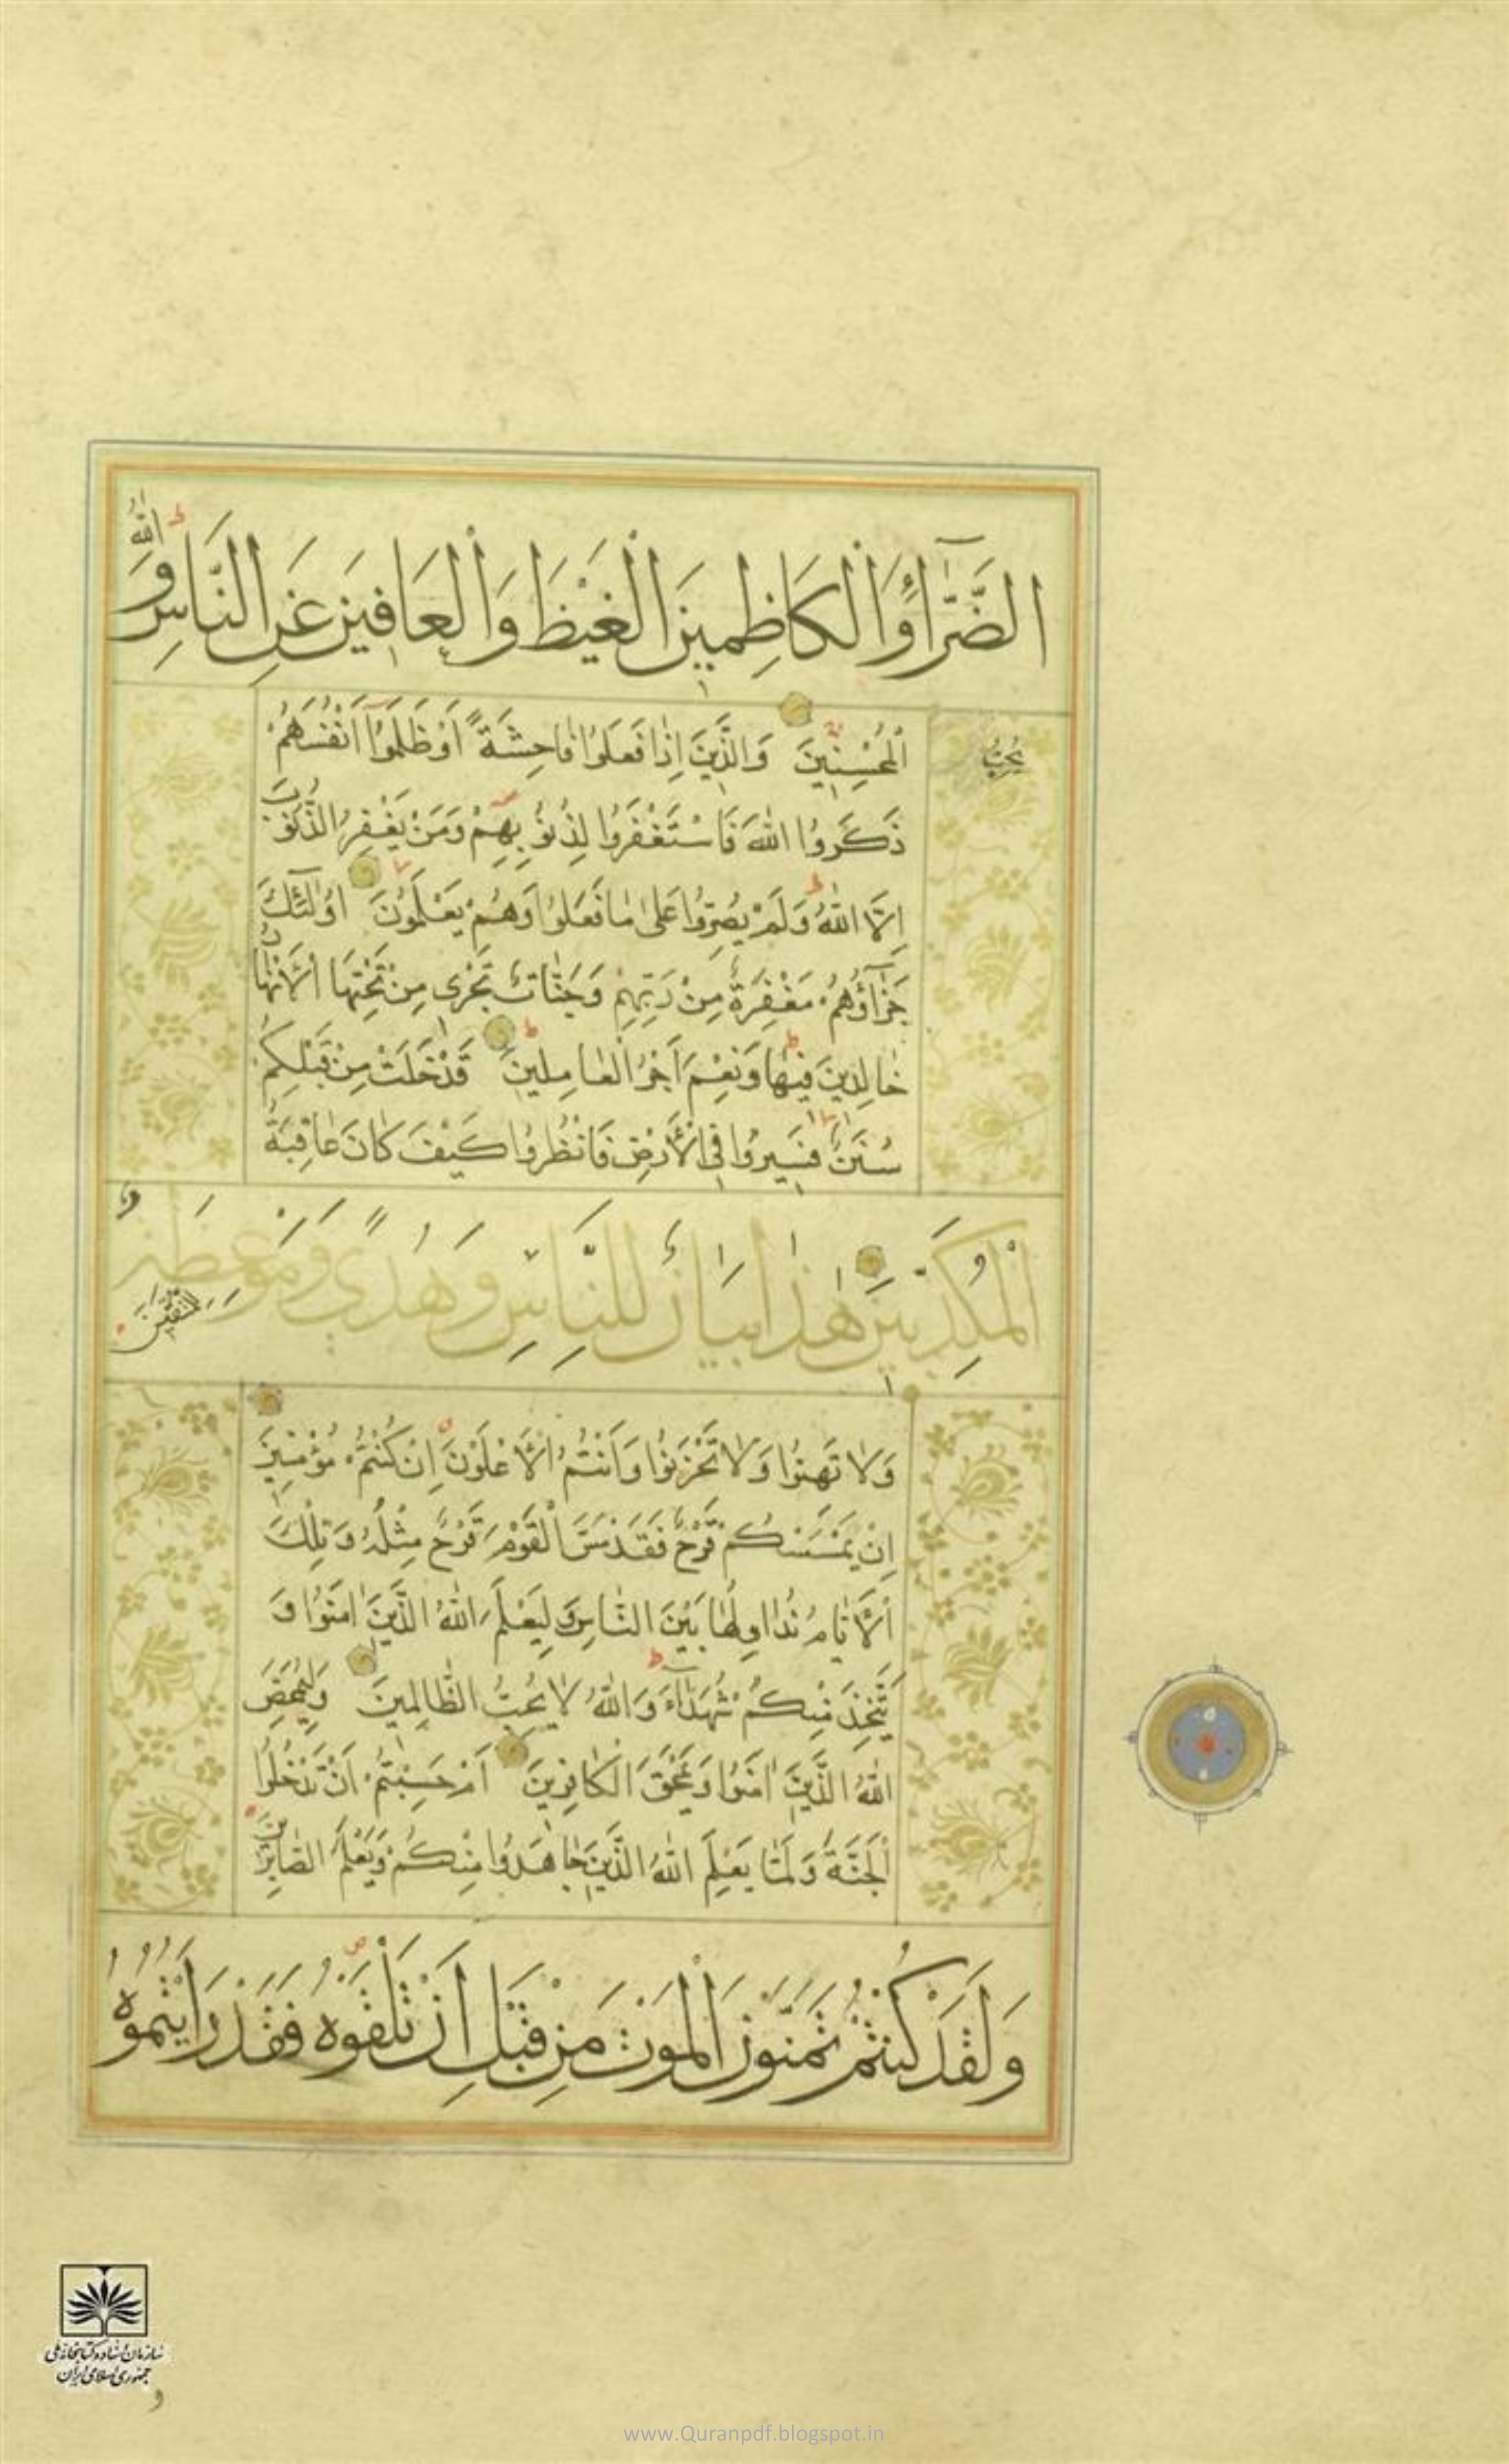 الضَّرَّاءِ وَالْكَاظِمِينَ الْغَيْظَ وَالْعَافِينَ عَنِ النَّاسِ وَاللّٰهُ
يُحِبُّ
الْمُحْسِنِينَ وَالَّذِينَ اِذَا فَعَلُوا فَاحِشَةً اَوْ ظَلَمُوا اَنْفُسَهُمْ
ذَكَرُوا اللّٰهَ فَاسْتَغْفَرُوا لِذُنُوبِهِمْ وَمَنْ يَغْفِرُ الذُّنُوبَ
اِلَّا اللّٰهُ وَلَمْ يُصِرُّوا عَلٰى مَا فَعَلُوا وَهُمْ يَعْلَمُونَ اُولٰئِكَ
جَزَآؤُهُمْ مَغْفِرَةٌ مِنْ رَبِّهِمْ وَجَنَّاتٌ تَجْرِى مِنْ تَحْتِهَا الْاَنْهَارُ
خَالِدِينَ فِيهَا وَنِعْمَ اَجْرُ الْعَامِلِينَ قَدْ خَلَتْ مِنْ قَبْلِكُمْ
سُنَنٌ فَسِيرُوا فِى الْاَرْضِ فَانْظُرُوا كَيْفَ كَانَ عَاقِبَةُ
الْمُكَذِّبِينَ هٰذَا بَيَانٌ لِلنَّاسِ وَهُدًى وَمَوْعِظَةٌ
لِلْمُتَّقِينَ
وَلَا تَهِنُوا وَلَا تَحْزَنُوا وَاَنْتُمُ الْاَعْلَوْنَ اِنْ كُنْتُمْ مُؤْمِنِينَ
اِنْ يَمْسَسْكُمْ قَرْحٌ فَقَدْ مَسَّ الْقَوْمَ قَرْحٌ مِثْلُهُ وَتِلْكَ
الْاَيَّامُ نُدَاوِلُهَا بَيْنَ النَّاسِ وَلِيَعْلَمَ اللّٰهُ الَّذِينَ اٰمَنُوا وَ
يَتَّخِذَ مِنْكُمْ شُهَدَآءَ وَاللّٰهُ لَا يُحِبُّ الظَّالِمِينَ وَلِيُمَحِّصَ
اللّٰهُ الَّذِينَ اٰمَنُوا وَيَمْحَقَ الْكَافِرِينَ اَمْ حَسِبْتُمْ اَنْ تَدْخُلُوا
الْجَنَّةَ وَلَمَّا يَعْلَمِ اللّٰهُ الَّذِينَ جَاهَدُوا مِنْكُمْ وَيَعْلَمَ الصَّابِرِينَ
وَلَقَدْ كُنْتُمْ تَمَنَّوْنَ الْمَوْتَ مِنْ قَبْلِ اَنْ تَلْقَوْهُ فَقَدْ رَاَيْتُمُوهُ
سازمان اسناد و کتابخانه ملی
جمهوری اسلامی ایران
و
www.Quranpdf.blogspot.in